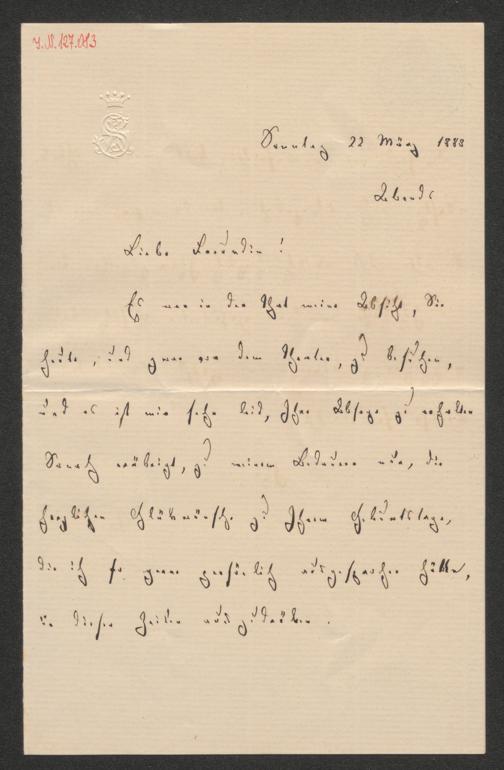 J.N. 127.083
Sonntag 22 März 1888
Abends
Liebe Freundin!
Es war in der That meine Absicht, Sie
heute, und zwar vor dem Theater, zu besuchen,
und es ist mir sehr leid, Ihre Absage zu erhalten
erübrigt, zu meinem Bedauern nur, die
herzlichen Glückwünsche zu Ihrem Geburtstage,
die ich so gerne persönlich ausgesprochen hätte,
in diesen Zeilen auszudrücken.